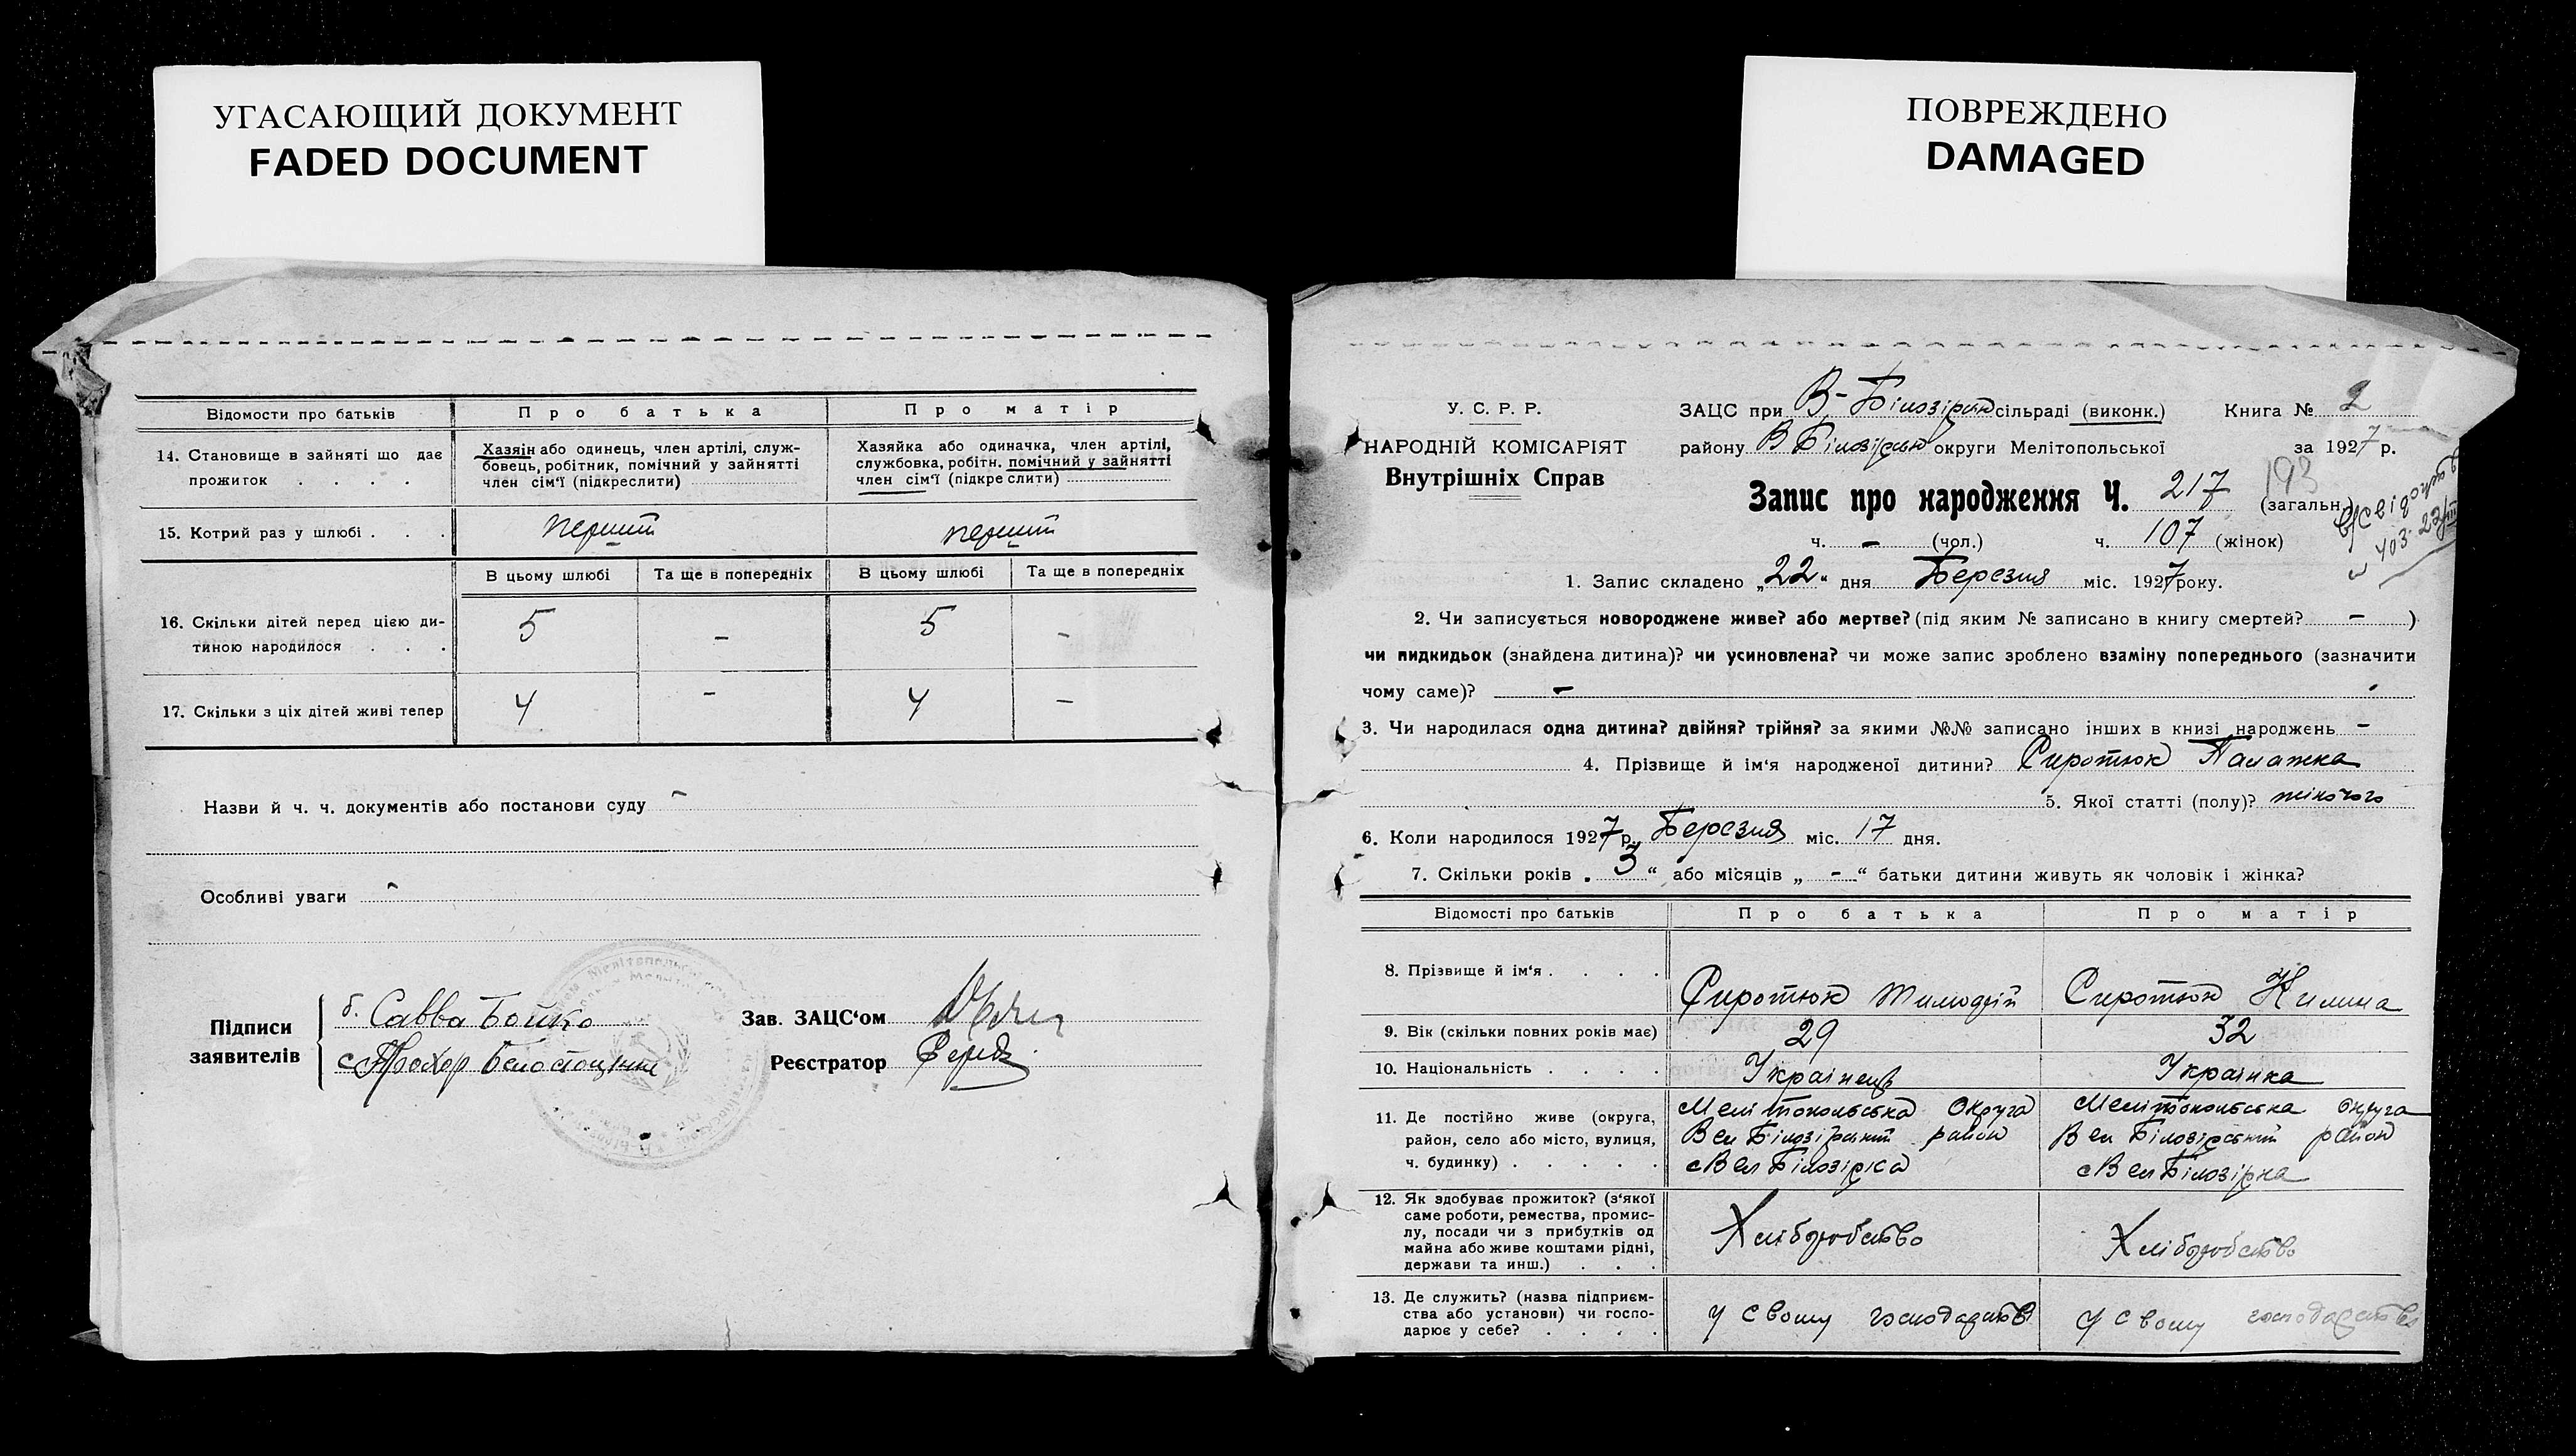 УГАСАЮЩИЙ ДОКУМЕНТ
FADED DOCUMENT
ПОВРЕЖДЕНО
DAMAGED
Відомости про батьків
Про батька
Про матір
14. Становище в зайняті що дає
прожиток . . . .
Хазяін або одинець, член артілі, служ-
бовець, робітник, помічний у зайнятті
член сім'ї (підкреслити)
Хазяйка або одиначка, член артілі,
службовка, робітн. помічний у зайнятті
член сім'ї (підкре слити)
15. Котрий раз у шлюбі . . .
перший
перший
В цьому шлюбі
Та ще в попередніх
В цьому шлюбі
Та ще в попередніх
16. Скільки дітей перед цією ди-
тиною народилося . . .
5
-
5
-
17. Скільки з ціх дітей живі тепер
4
-
4
-
Назви й ч. ч. документів або постанови суду -
Особливі уваги -
Підписи
заявителів
б. Савва Бойко
с Прохор
Зав. ЗАЦС'ом
Реєстратор
У. С. Р. Р.
НАРОДНІЙ КОМІСАРІЯТ
Внутрішніх Справ
ЗАЦС при В-Білозірськ сільраді (виконк.)
Книга № 2
району В Білозірськ округи Мелітопольської
за 1927 р.
Запис про народження Ч. 217 (загальн.)
193
ч. - (чол.) ч. 107 (жінок)
403. 23/III
1. Запис складено „22“ дня Березня міс. 1927 року.
2. Чи записується новороджене живе? або мертве? (під яким № записано в книгу смертей? - )
чи пидкидьок (знайдена дитина)? чи усиновлена? чи може запис зроблено взаміну попереднього (зазначити
чому саме)? -
3. Чи народилася одна дитина? двійня? трійня? за якими №№ записано інших в книзі народжень -
4. Прізвище й ім'я народженої дитини? Сиротюк Палажка
5. Якої статті (полу)? жіночого
6. Коли народилося 1927 р. Березня міс. 17 дня.
7. Скільки років „ 3 “ або місяців „ - “ батьки дитини живуть як чоловік і жінка?
Відомості про батьків
Про батька
Про матір
8. Прізвище й ім'я . . . .
Сиротюк Тимофій
Сиротюк Килина
9. Вік (скільки повних років має)
29
32
10. Національність . . . .
Українець
Українка
11. Де постійно живе (округа,
район, село або місто, вулиця,
ч. будинку) . . . . .
Мелітопольська Округа
Вел Білозірський район
с Вел Білозірка
Мелітопольська округа
Вел Білозірський район
с Вел Білозірка
12. Як здобуває прожиток? (з'якої
саме роботи, ремества, промис-
лу, посади чи з прибутків од
майна або живе коштами рідні,
держави та инш.) . . .
Хліборобство
Хліборобство
13. Де служить? (назва підприєм-
ства або установи) чи госпо-
дарює у себе? . . . .
У свому господарстві
У свому господарстві